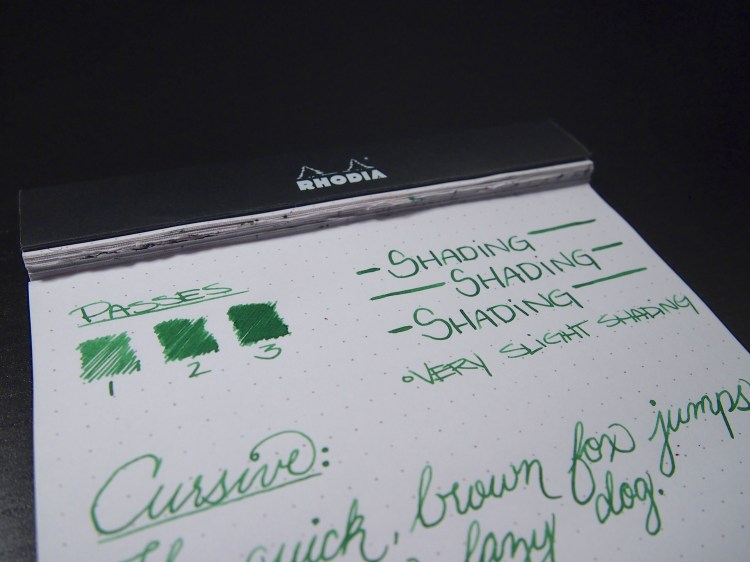 RHODIA
PASSES
1 2 3
- SHADING —
— SHADING -
- SHADING —
• VERY SLIGHT SHADING
Cursive:
The quick, brown fox jumps
lazy dog.